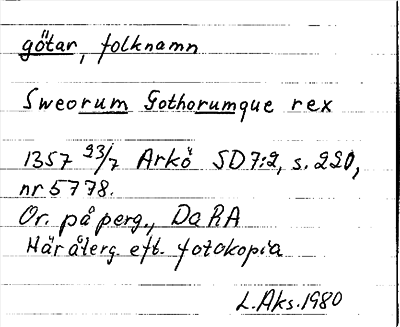 götar, folknamn
Sweorum Gothorumque rex
1357 23/7 Arkö SD7:2, s. 220,
nr 5778.
Or. på perg., DaRA
Här återg. eft. fotokopia
L.Aks.1980